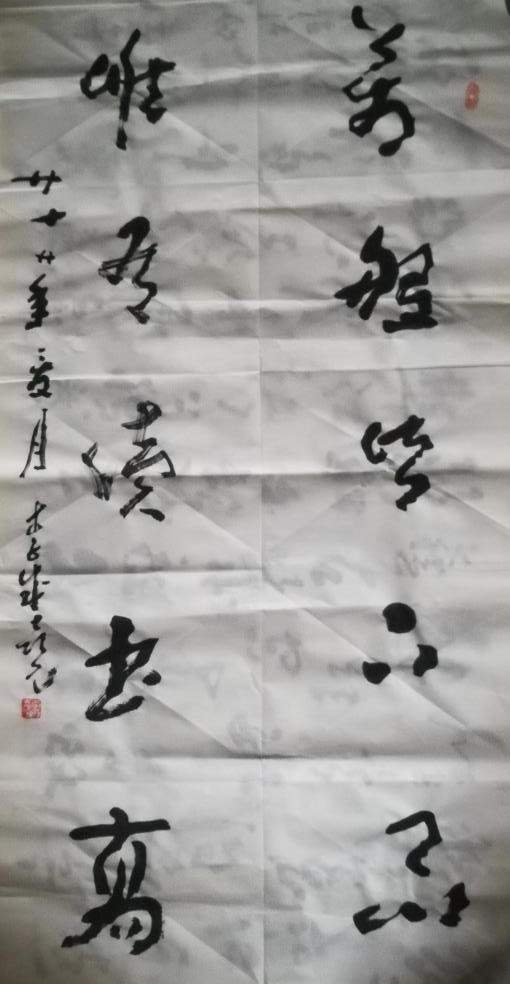 萬般皆下品
惟有讀書高
廿十廿年夏月